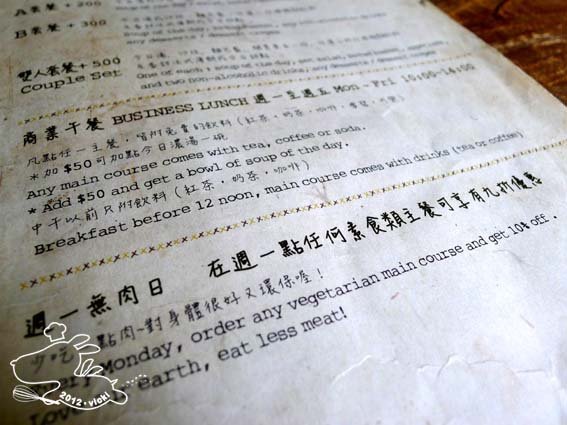 A套餐 + 200
B套餐 + 300
雙人套餐 + 500
Couple Set
One of each soup of the day, set, any desserts / desserts
and two non-alcoholic drinks, any
商業午餐 BUSINESS LUNCH 週一至週五 Mon - Fri 10:00-14:00
凡點任一主餐,皆附免費的飲料(紅茶、奶茶、咖啡、
*加$50可加點今日濃湯一碗
Any main course comes with tea, coffee or soda.
* Add $50 and get a bowl of soup of the day.
中午以前只附飲料(紅茶、奶茶、咖啡)
Breakfast before 12 noon, main course comes with drinks (tea or coffee)
週一無肉日 在週一點任何素食類主餐可享有九折優惠
少吃點肉-對身體很好又環保喔!
Monday, order any vegetarian main course and get 10% off.
Love earth, eat less meat!
2012·vicki